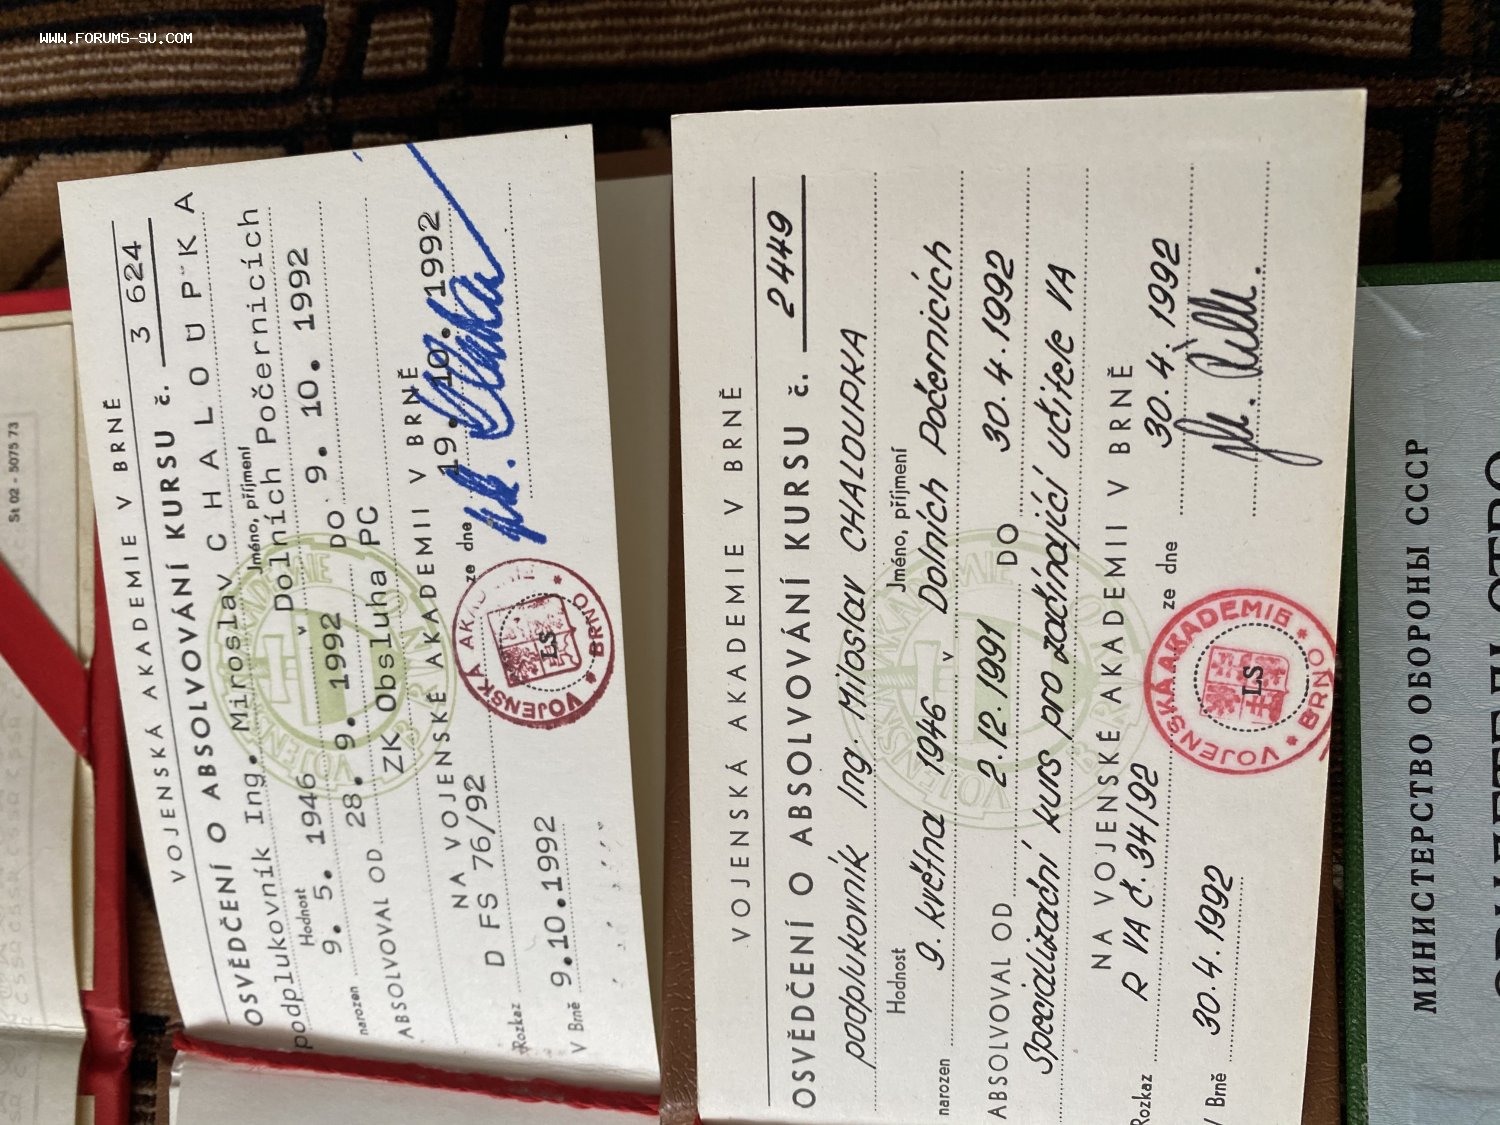 WWW.FORUMS-SU.COM
St 02 - 5075 73
VOJENSKÁ AKADEMIE V BRNĚ
OSVĚDČENÍ O ABSOLVOVÁNÍ KURSU č. 3 624
podplukovník Ing. Miroslav CHALOUPKA
Hodnost Jméno, příjmení
narozen 9. 5. 1946 v Dolních Počernicích
ABSOLVOVAL OD 28. 9. 1992 DO 9. 10. 1992
ZK Obsluha PC
NA VOJENSKÉ AKADEMII V BRNĚ
Rozkaz D FS 76/92 ze dne 19.10.1992
V Brně 9.10.1992
LS
VOJENSKÁ AKADEMIE * BRNO *
VOJENSKÁ AKADEMIE V BRNĚ
OSVĚDČENÍ O ABSOLVOVÁNÍ KURSU č. 2449
podplukovník Ing. Miloslav CHALOUPKA
Hodnost Jméno, příjmení
narozen 9. května 1946 v Dolních Počernicích
ABSOLVOVAL OD 2.12.1991 DO 30.4.1992
Specializační kurs pro začínající učitele VA
NA VOJENSKÉ AKADEMII V BRNĚ
Rozkaz R VA č. 34/92 ze dne 30.4.1992
V Brně 30.4.1992
LS
VOJENSKÁ AKADEMIE * BRNO *
МИНИСТЕРСТВО ОБОРОНЫ СССР